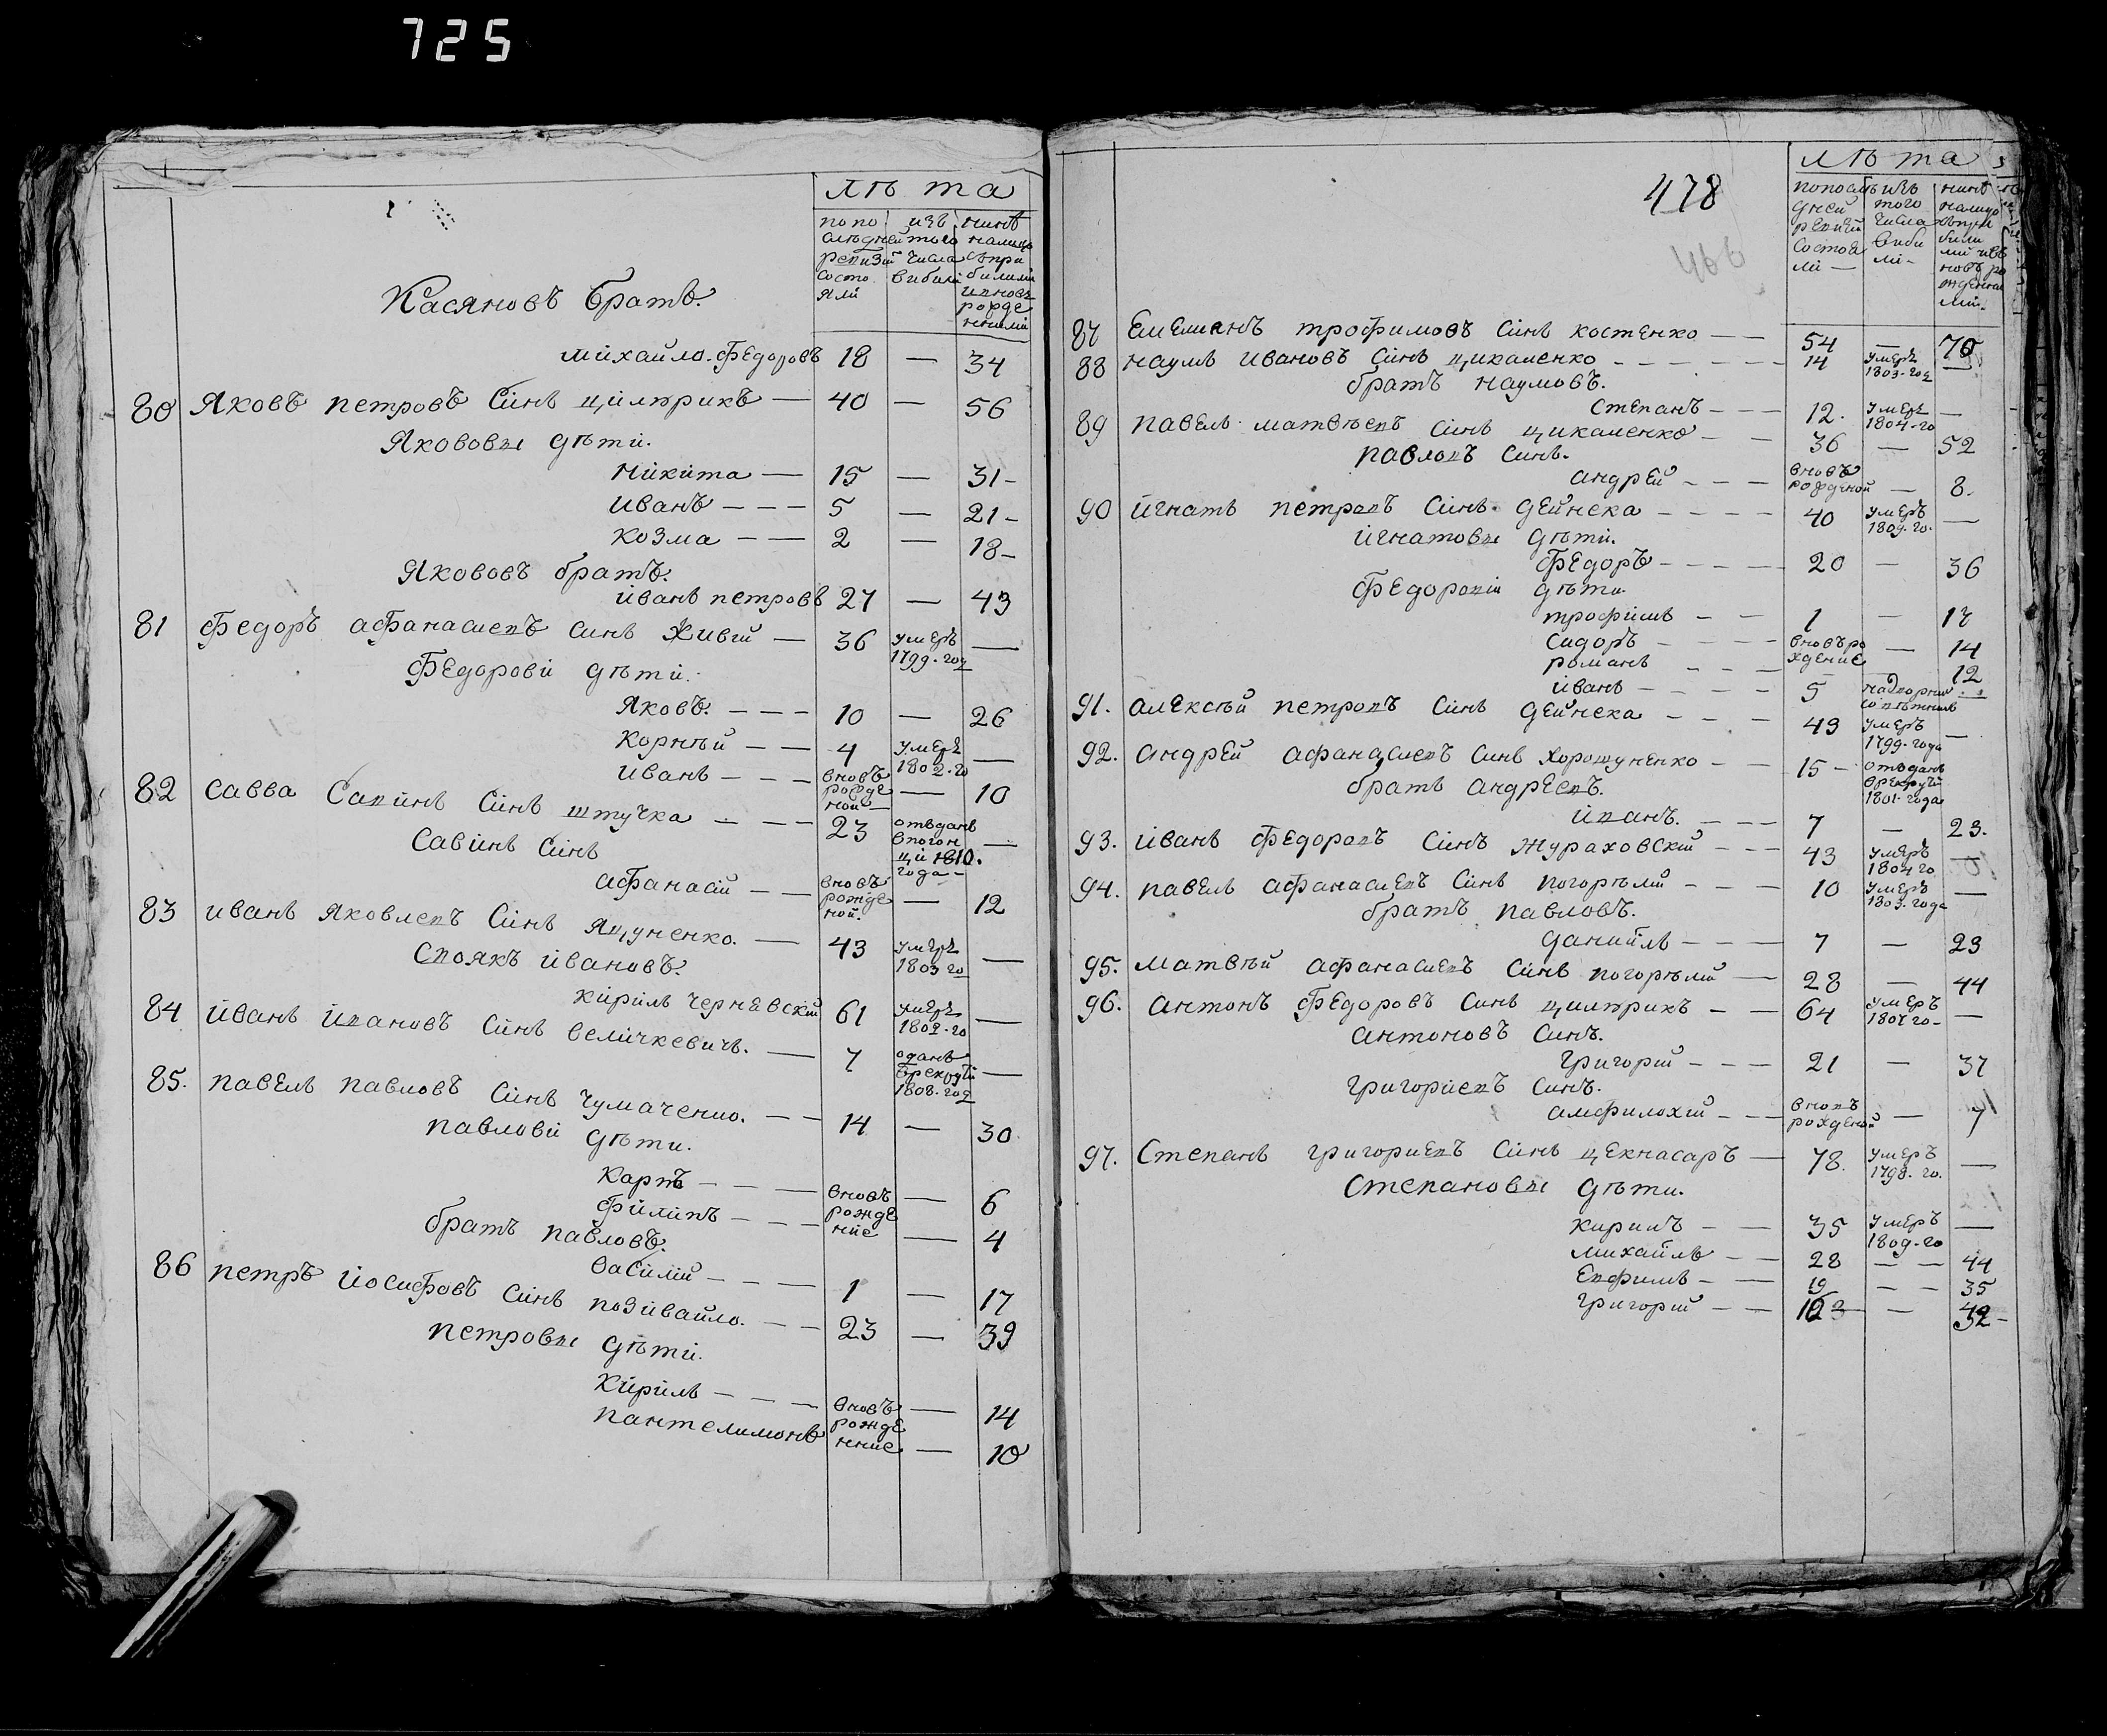 725
лѣта
по по изъ нинѣ
слѣдней того налицо
ревизій числа съпри
состо вибили билими
яли ивновъ
рожде
нними
Касяновъ братъ.
михайло Федоровъ 18 — 34
80 Яковъ петровъ Синъ цилюрикъ — 40 — 56
Яковови дѣти.
никита — 15 — 31 -
иванъ - - - 5 — 21 -
козма - — 2 — 18 -
Якововъ братъ.
иванъ петровъ 27 — 43
81 Федоръ афанасиевъ синъ живій — 36 умеръ 1799. год —
Федорови дѣти.
Яковъ. - - - 10 — 26
корнѣй - — 4 умеръ 1802. го —
иванъ - - - вновъ рожде ной — 10
82 Савва Савинъ Синъ штучка - - - 23 отъданъ впогон ци 1810. года - —
Савинъ Синъ
афанасій - — вновъ рожде ной. — 12
83 иванъ Яковлевъ Синъ Яцуненко. — 43 умеръ 1803 го —
Своякъ ивановъ.
кирилъ чернавскій 61 умеръ 1802. го —
84 иванъ ивановъ Синъ величкевичъ. — 7 оданъ врекрути 1808. год —
85. павелъ павловъ Синъ чумаченко. - — 14 — 30
павлови дѣти.
карпъ - - - вновъ — 6
филипъ - - - рожде ние — 4
братъ павловъ.
василій - - — 1 — 17
86 петръ иосифовъ Синъ позивайло. - - 23 — 39
петрови дѣти.
кирилъ - - - вновъ — 14
пантелимонъ рожде нние — 10
478
466
лѣта
попослѣ изъ нинѣ
дней того налицо
ревизій числа съпри
состоя виби били
ли — ли - ми ивъ
новъ ро
жденни
ми.
87 Емелианъ трофимовъ Синъ костенко - — 54 — 70
88 наумъ ивановъ Синъ цикаленко - - - - 14 умеръ 1803. год —
братъ наумовъ.
Степанъ - - - 12. умеръ 1804. го —
89 павелъ матвѣевъ Синъ цикаленко - — 36 — 52
павловъ Синъ.
андрей - - - вновъ рожденой — 8.
90 игнатъ петровъ Синъ дейнека - - - - 40 умеръ 1809. го. —
игнатови дѣти.
Федоръ - - - - 20 — 36
Федоровіи дѣти
трофимъ - - 1 — 17
Сидоръ - - - вновъ ро — 14
романъ - - - ждение 12
иванъ - - - - 5
91. алексѣй петровъ Синъ дейнека - - - 43 умеръ 1799. года —
92. андрей афанасиевъ Синъ хорошуненко - — 15 - отъданъ врекрути 1801. года
братъ андреевъ.
иванъ. - - - 7 — 23.
93. иванъ федоровъ Синъ жураховскій - - - 43 умеръ 1804 го —
94. павелъ афанасиевъ Синъ погорѣлій - - - 10 умеръ 1803. года —
братъ павловъ.
данийлъ - - — 7 — 23
95. матвѣй афанасиевъ Синъ погорѣлій — 28 — 44
96. антонъ Федоровъ Синъ цилюрикъ - — 64 умеръ 1807 го - —
антоновъ Синъ.
григорій - - - 21 — 37
григориевъ Синъ.
амфилохій - - - вновъ рожденой — 7
97. Степанъ григориевъ Синъ цекнасаръ — 78. умеръ 1798. го. —
Степанови дѣти.
кирилъ - — 35 умеръ 1809. го —
михайлъ - — 28 - — 44
Евфимъ - — 19 - — 35
григорій - —